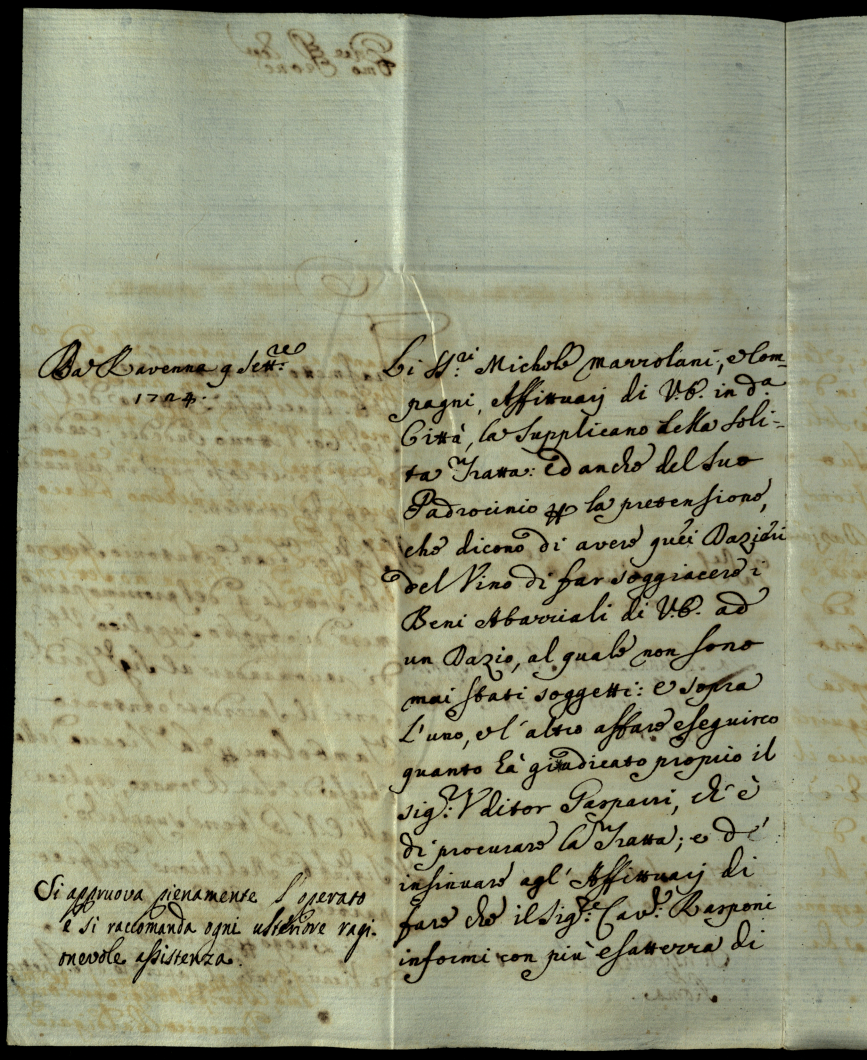 Da Ravenna 9 Sett.re
1724.
Li SS.ri Michele Marzolani, e Com-
pagni, Affittuarij di V.E. in d.a
Città, la supplicano della soli-
ta Tratta: ed anche del suo
Padrocinio per la pretensione,
che dicono di avere quei Dazieri
del Vino di far soggiacere i
Beni Abazziali di V.E. ad
un Dazio, al quale non sono
mai stati soggetti: e sopra
l'uno, e l'altro affare eseguirco
quanto hà giudicato proprio il
sig.r Uditor Gasparri, ch'è
di procurare la Tratta; e d'
insinuare agl'Affittuarij di
fare che il Sig.re Cav.r Rasponi
informi con più esattezza di
Si appruova pienamente l'operato
e si raccomanda ogni ulteriore ragi-
onevole assistenza.